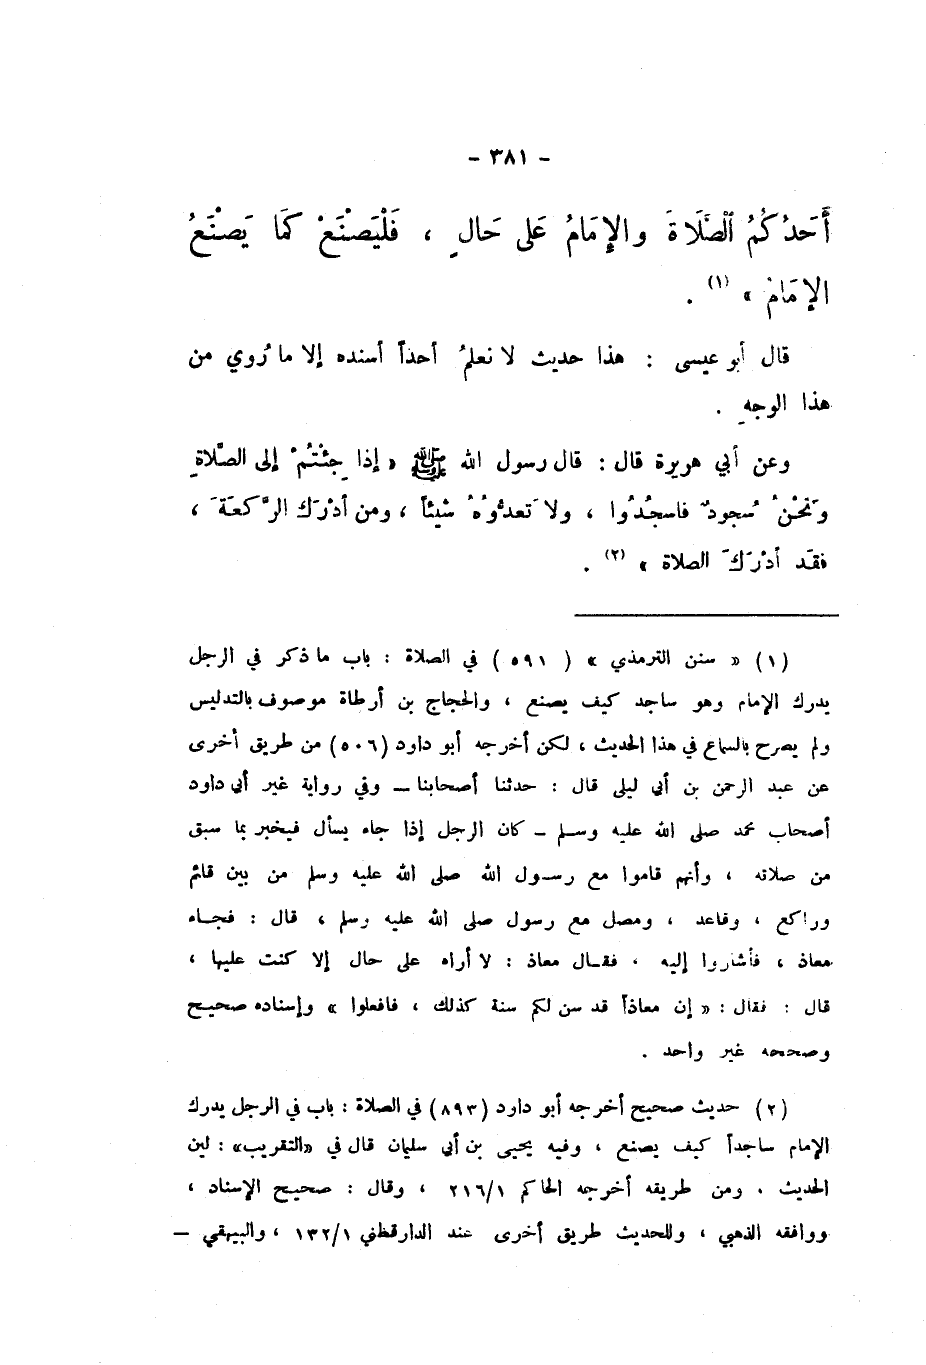 - ٣٨١ -
أَحَدُكُمُ ٱلصَّلَاةَ والإِمَامُ عَلى حَالٍ ، فَلْيَصْنَعْ كَمَا يَصْنَعُ
الإِمَامُ » (١) .
قال أبو عيسى : هذا حديث لا نعلمُ أحداً أسنده إلا ما رُوي من
هذا الوجهِ .
وعن أبي هريرة قال : قال رسول الله ﷺ « إذا جِئْتُمْ إلى الصَّلاةِ
وَنَحْنُ سُجودٌ فاسجُدُوا ، ولا تَعدُّوُهُ شيئاً ، ومن أدْرَكَ الرَّكعَةَ ،
فقَد أدْرَكَ الصلاة » (٢) .
(١) « سنن الترمذي » ( ٥٩١ ) في الصلاة : باب ما ذكر في الرجل
يدرك الإمام وهو ساجد كيف يصنع ، والحجاج بن أرطاة موصوف بالتدليس
ولم يصرح بالسماع في هذا الحديث ، لكن أخرجه أبو داود (٥٠٦) من طريق أخرى
عن عبد الرحمن بن أبي ليلى قال : حدثنا أصحابنا ــ وفي رواية غير أبي داود
أصحاب محمد صلى الله عليه وسـلم ــ كان الرجل إذا جاء يسأل فيخبر بما سبق
من صلاته ، وأنهم قاموا مع رسـول الله صلى الله عليه وسلم من بين قائم
وراكع ، وقاعد ، ومصل مع رسول صلى الله عليه وسلم ، قال : فجـاء
معاذ ، فأشاروا إليه . فقـال معاذ : لا أراه على حال إلا كنت عليها ،
قال : فقال : « إن معاذاً قد سن لكم سنة كذلك ، فافعلوا » وإسناده صحيـح
وصححه غير واحد .
(٢) حديث صحيح أخرجه أبو دارد (٨٩٣) في الصلاة : باب في الرجل يدرك
الإمام ساجداً كيف يصنع ، وفيه يحيى بن أبي سليمان قال في «التقريب» : لين
الحديث . ومن طريقه أخرجه الحاكم ٢١٦/١ ، وقال : صحيـح الإسناد ،
ووافقه الذهبي ، وللحديث طريق أخرى عند الدارقطني ١٣٢/١ ، والبيهقي ــ